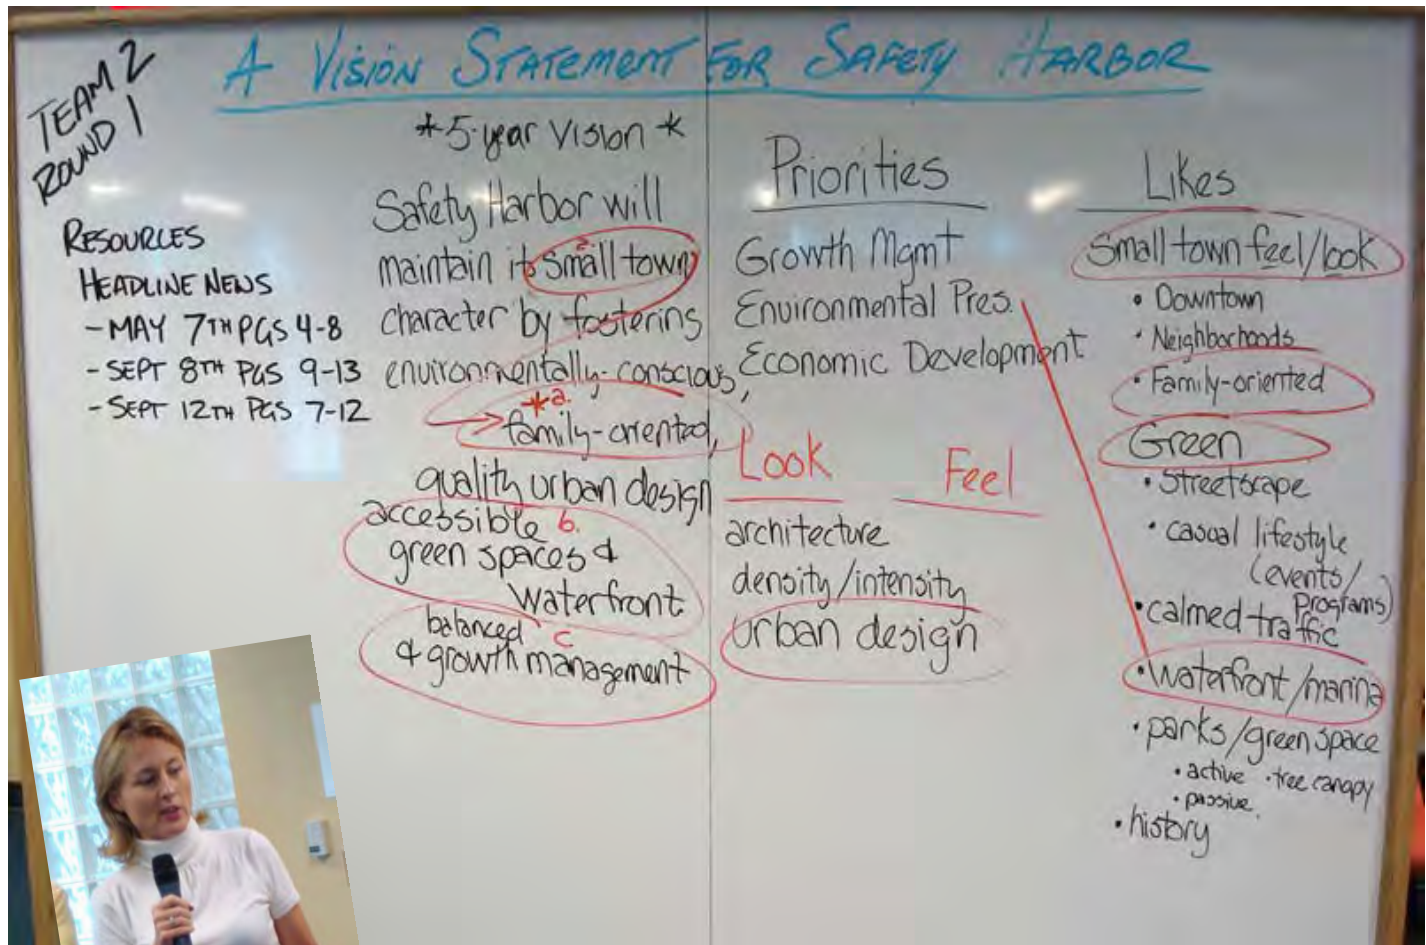 A VISION STATEMENT FOR SAFETY HARBOR
TEAM 2
ROUND 1
RESOURCES
HEADLINE NEWS
- MAY 7TH PGS 4-8
- SEPT 8TH PGS 9-13
- SEPT 12TH PGS 7-12
*5-year Vision*
Safety Harbor will
maintain its small town
character by fostering
environmentally-conscious,
*a.
family-oriented,
quality urban design
accessible b.
green spaces &
waterfront
balanced c
& growth management
Priorities
Growth Mgmt
Environmental Pres.
Economic Development
Look Feel
architecture
density/intensity
urban design
Likes
Small town feel/look
• Downtown
• Neighborhoods
• Family-oriented
Green
• Streetscape
• casual lifestyle
(events/
Programs)
• calmed traffic
• Waterfront/marina
• parks/green space
• active • tree canopy
• passive
• history